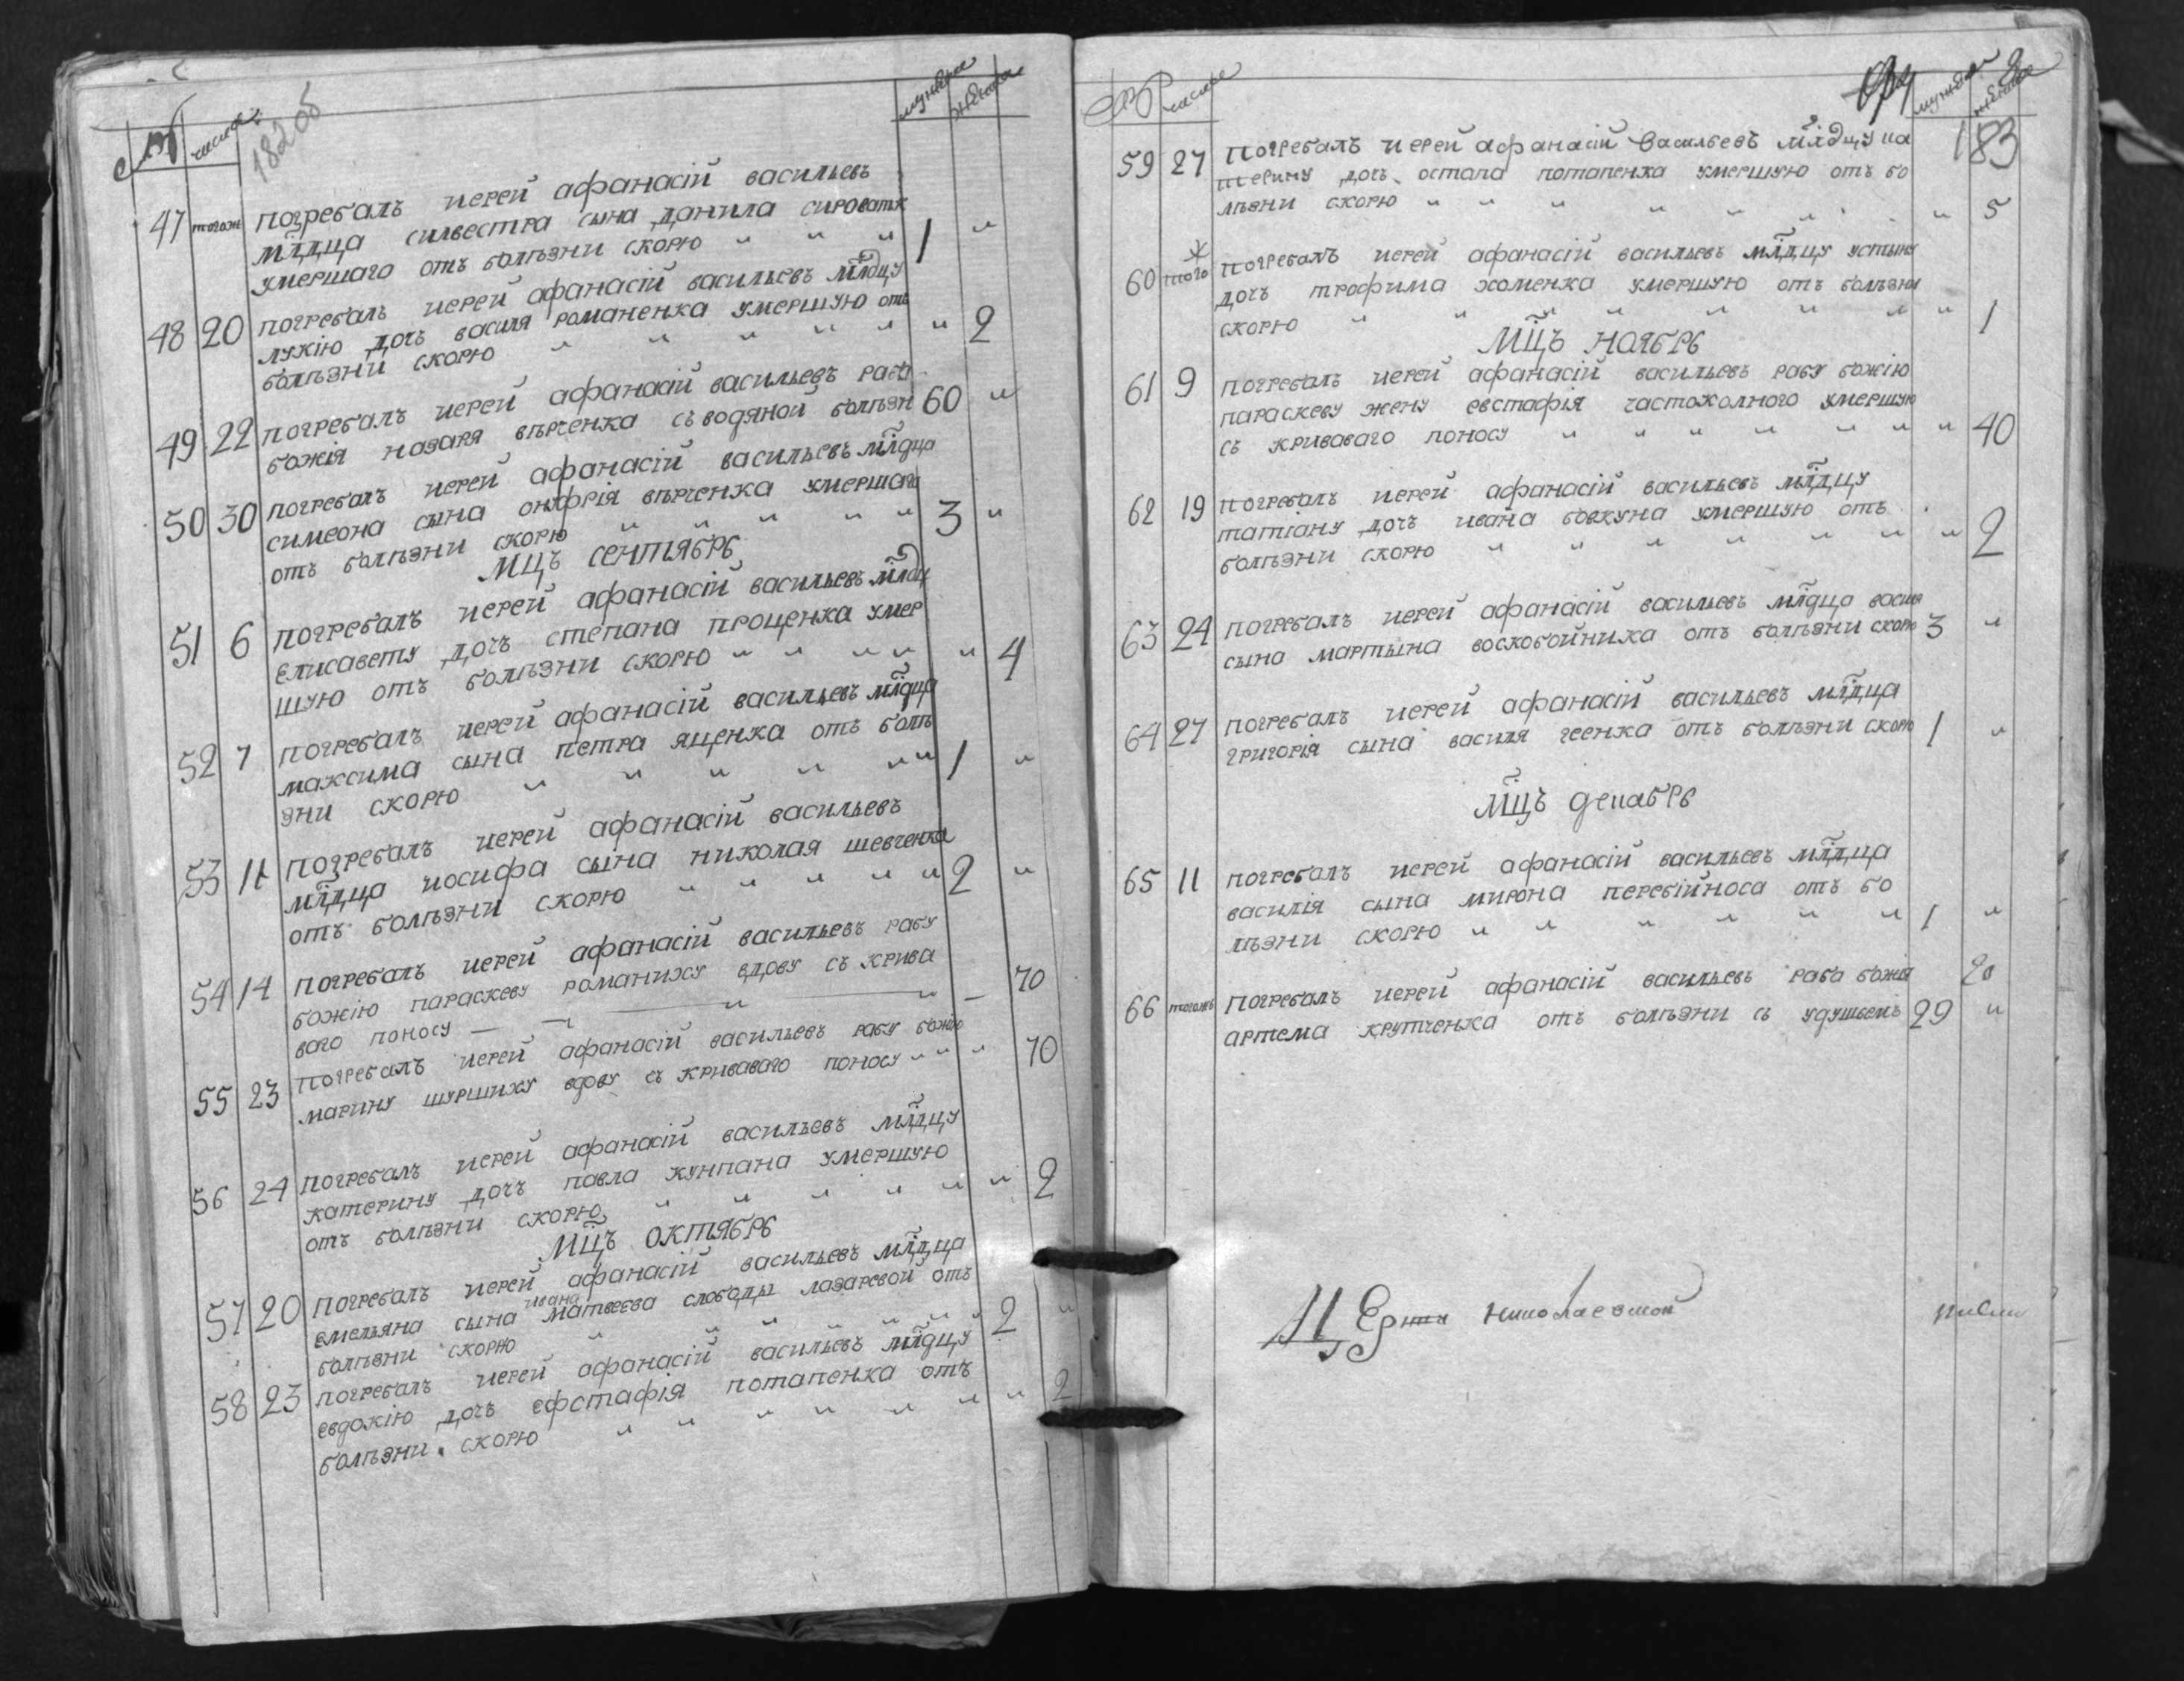 № числа мужеска женска
182об
47 тогож погребалъ иерей афанасій васильевъ
мл҃дца силвестра сына данила сироватк
умершаго отъ болѣзни скорю " " " 1 "
48 20 погребалъ иерей афанасій васильевъ мл҃дцу
лукію дочь василя романенка умершую отъ
болѣзни скорю " " " " " " 2
49 22 погребалъ иерей афанасій васильевъ раба
божія назаря вѣрченка съ водяной болѣзн 60 "
50 30 погребалъ иерей афанасій васильевъ мл҃дца
симеона сына онуфрія вѣрченка умершаго
отъ болѣзни скорю " " " " " 3 "
мц҃ъ сентябрь
51 6 погребалъ иерей афанасій васильевъ мл҃дцу
елисавету дочь степана проценка умер
шую отъ болѣзни скорю " " " " " 4
52 7 погребалъ иерей афанасій васильевъ мл҃дца
максима сына петра яценка отъ болѣ
зни скорю " " " " " " 1 "
53 11 погребалъ иерей афанасій васильевъ
мл҃дца иосифа сына николая шевченка
отъ болѣзни скорю " " " " " 2 "
54 14 погребалъ иерей афанасій васильевъ рабу
божію параскеву романиху вдову съ крива
ваго поносу — " — " — 70
55 23 погребалъ иерей афанасій васильевъ рабу божію
марину шуршиху вдову съ криваваго поносу " " " 70
56 24 погребалъ иерей афанасій васильевъ мл҃дцу
катерину дочь павла кунпана умершую
отъ болѣзни скорю " " " " " " 2
мц҃ъ октябрь
57 20 погребалъ иерей афанасій васильевъ мл҃дца
емельяна сына ивана матвеева слободы лазаревой отъ
болѣзни скорю " " " " " " 2 "
58 23 погребалъ иерей афанасій васильевъ мл҃дцу
евдокію дочь ефстафія потапенка отъ
болѣзни скорю " " " " " " 2
№ числа мужеска женска
183
59 27 погребалъ иерей афанасій васильевъ мл҃дцу ка
терину дочь остапа потапенка умершую отъ бо
лѣзни скорю " " " " " " " 5
60 того ж погребалъ иерей афанасій васильевъ мл҃дцу устыну
дочь трофима хоменка умершую отъ болѣзни
скорю " " " " " " " 1
мц҃ъ ноябрь
61 9 погребалъ иерей афанасій васильевъ рабу божію
параскеву жену евстафія частоколного умершую
съ криваваго поносу " " " " " " " 40
62 19 погребалъ иерей афанасій васильевъ мл҃дцу
татіану дочь ивана бовкуна умершую отъ
болѣзни скорю " " " " " " " 2
63 24 погребалъ иерей афанасій васильевъ мл҃дца васил
сына мартына воскобойника отъ болѣзни скорю 3 "
64 27 погребалъ иерей афанасій васильевъ мл҃дца
григорія сына василя геенка отъ болѣзни скорю 1 "
мц҃ъ декабрь
65 11 погребалъ иерей афанасій васильевъ мл҃дца
василія сына мирона перебійноса отъ бо
лѣзни скорю " " " " " " 1 "
66 тогожъ погребалъ иерей афанасій васильевъ раба божія
артема крутченка отъ болѣзни съ удушьемъ 29 "
николаевской